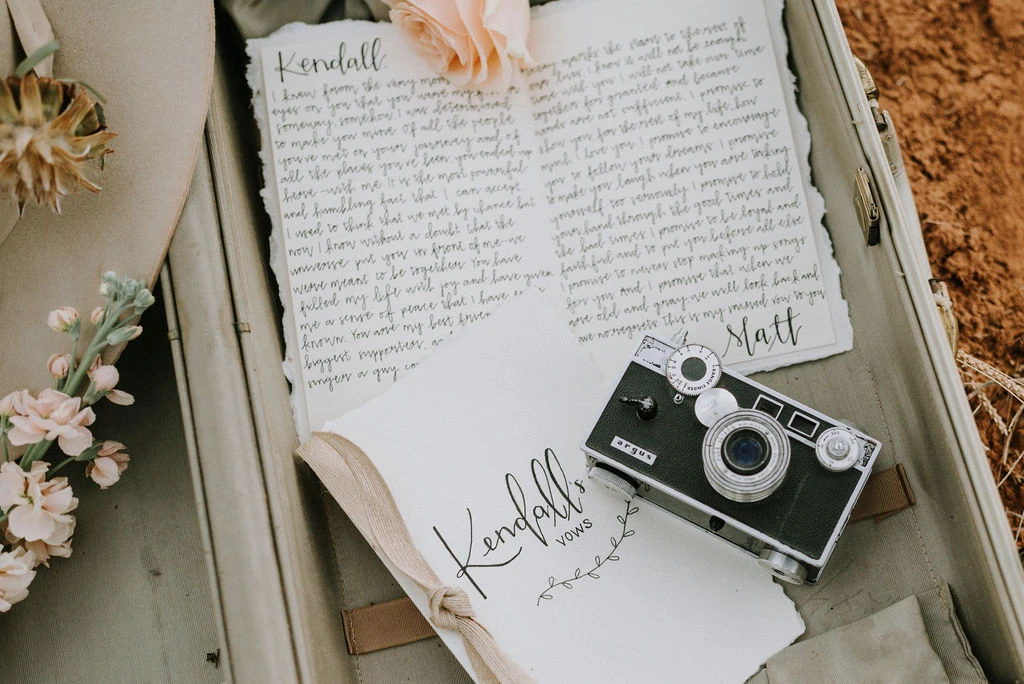 Kendall
I knew from the very mom
eyes on you that you were
someway somehow I was determined
to make you mine of all the people
you've met on your journey and of
all the places you've been, you ended up
here—with me. It is the most powerful
and humbling fact that I can accept
I used to think that we met by chance but
now I know without a doubt that the
universe put you in front of me—we
were meant to be together. You have
filled my life with joy and have given
me a sense of peace that I have
known. You are my best frien
biggest supporter, a
singer a guy co
marks the start to the rest of
our lives, I know it will not be enough
time with you I will not take our time
together for granted. And because
words are not sufficient, I promise to
show you, for the rest of my life, how
much I love you. I promise to encourage
you to follow your dreams. I promise
to make you laugh when you are taking
yourself too seriously. I promise to hold
your hand through the good times and
the bad times. I promise to be loyal and
faithful and to put you before all else.
I promise to never stop making up songs
for you. And I promise that when we
are old and gray we will look back and
no regrets. This is my sacred vow to you
Matt
Kendall's
vows
argus
RANGE FINDER